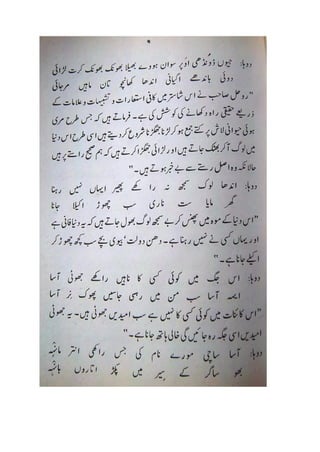 دوہا: جیوں ڈونڈھی اوپر سوان ہووے بھیلا بھونک بھونک کرت لڑائی
دوئی باندھے اکیانی اندھا کھانچو تان ماہیں مرجائی
"روحل صاحب نے اس شاستر میں کافی استعارات و تشبیہات و علامات کے
ذریعے حقیقی راہ دکھانے کی کوشش کی ہے۔ فرماتے ہیں کہ جس طرح مری
ہوئی حیوانی لاش پر کتے جمع ہو کر لڑنا جھگڑنا شروع کر دیتے ہیں اسی طرح اس دنیا
میں لوگ آ کر بھٹک جاتے ہیں اور لڑائی جھگڑا کرتے ہیں کہ ہم صحیح راستے پر ہیں
حالانکہ وہ اصل رستے سے بے خبر ہوتے ہیں۔"
دوہا: اندھا لوک سمجھ نہ را کھے پھیر ایہاں نہیں رہنا
گھر مایا ست ناری سب چھوڑ اکیلا جانا
"اس دنیا کے موہ میں پھنس کر بے سمجھ لوگ بھول جاتے ہیں کہ یہ دنیا فانی ہے
اور یہاں کسی نے نہیں رہنا ہے۔ دھن دولت، بیوی بچے سب کچھ چھوڑ کر
اکیلے جانا ہے۔"
دوہا: اس جگ میں کوئی کسی کا ناہیں راکھے جھوٹی آسا
ایہہ آسا سب من میں رہسی جاسیں پھوک نر آسا
"اس کائنات میں کوئی کسی کا نہیں ہے سب امیدیں جھوٹی ہیں۔ یہ جھوٹی
امیدیں اسی جگہ رہ جائیں گی خالی ہاتھ جانا ہے۔"
دوہا: آسا ساچی مورے نام کی جس راکھی انتر مانہہ
بھو ساگر کے سیر میں پکڑ اتاروں بانہہ